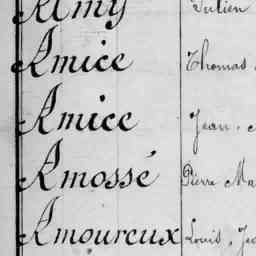 Almy Julien
Amice Thomas
Amice Jean
Amossé Pierre Ma
Amoureux Louis, Je